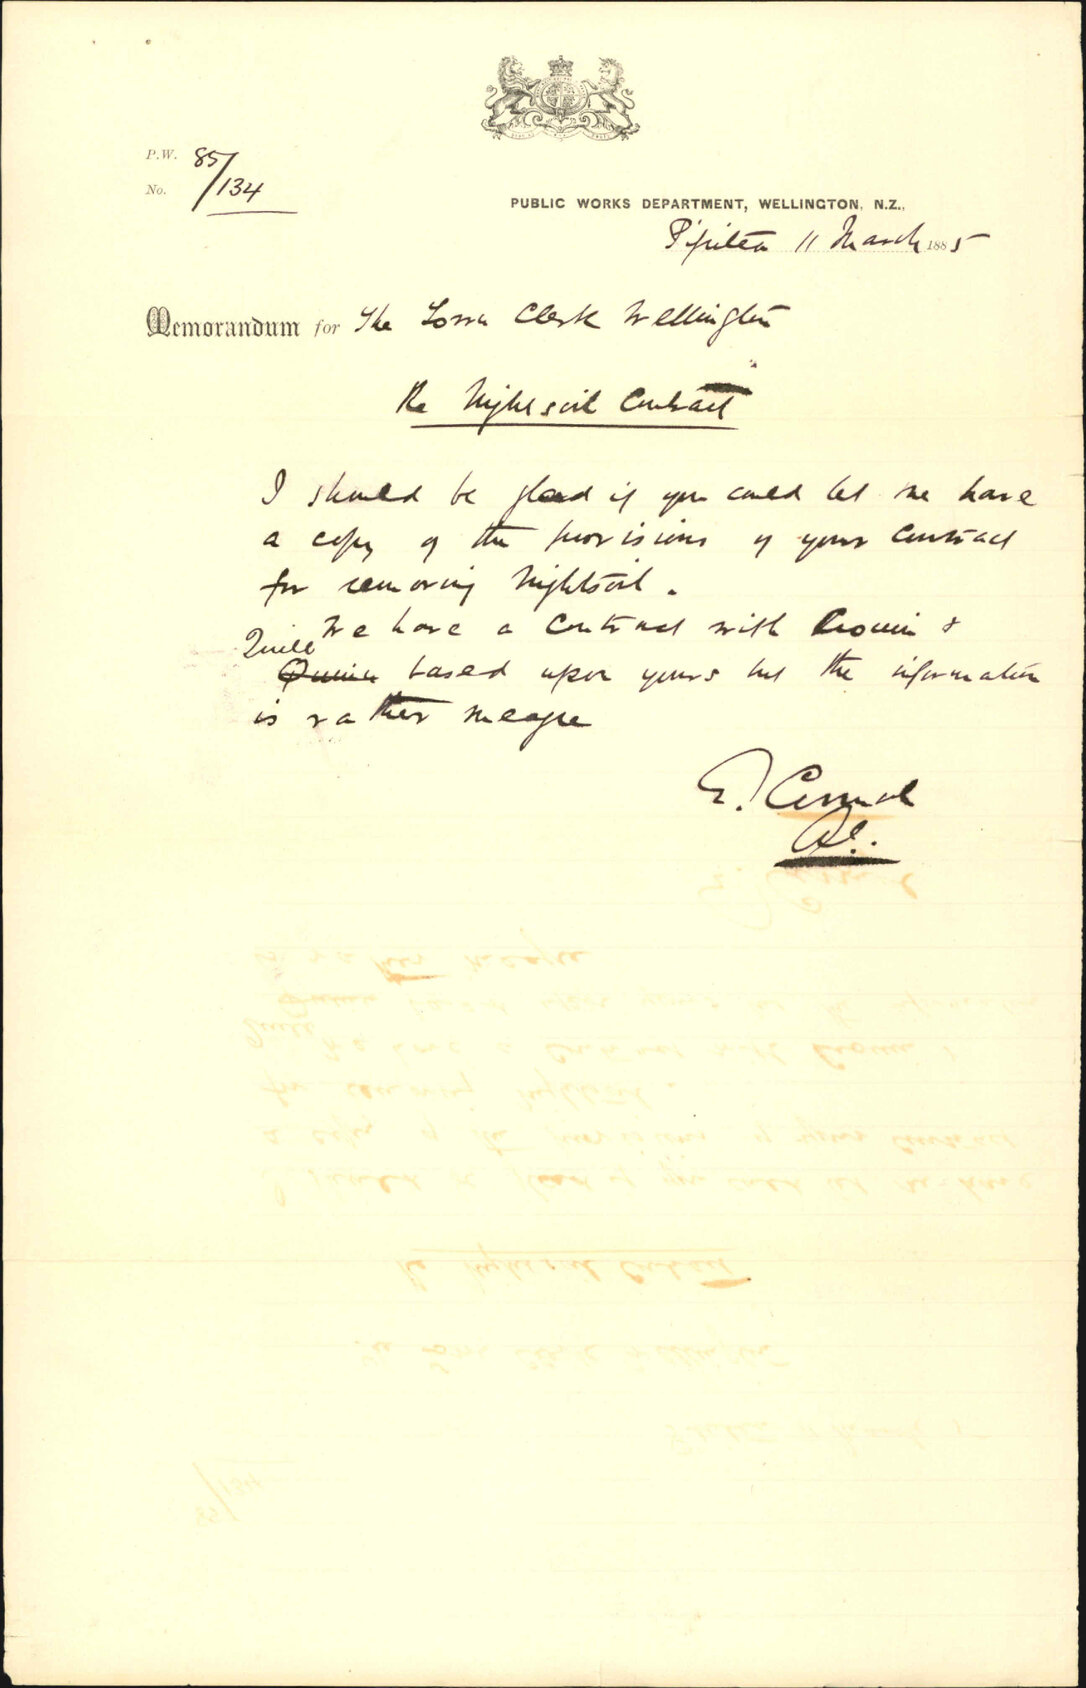 P.W. 85/134
No.
PUBLIC WORKS DEPARTMENT, WELLINGTON, N.Z.,
Pipitea 11 March 1885
Memorandum for The Town Clerk Wellington
Re Nightsoil Contract
I should be glad if you could let me have
a copy of the provisions of your Contract
for removing Nightsoil.
We have a Contract with Cronin &
Quill
Quinn based upon yours but the information
is rather meagre